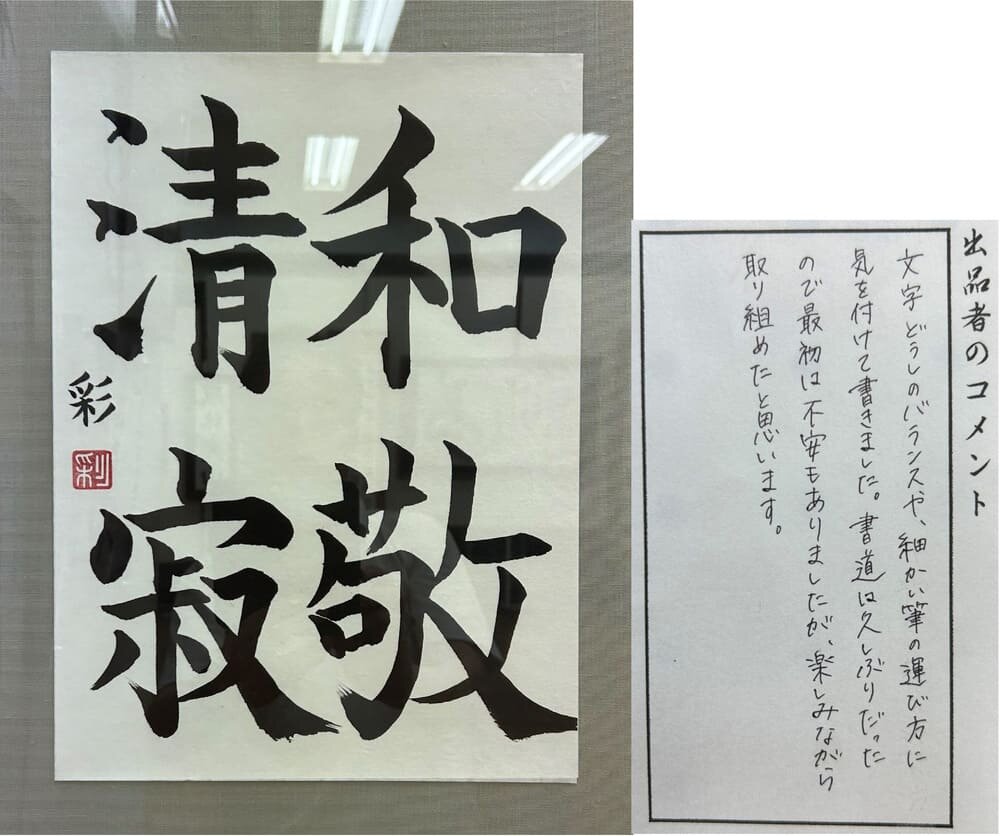 和敬
清寂
彩
彩
出品者のコメント
文字どうしのバランスや、細かい筆の運び方に
気を付けて書きました。書道は久しぶりだった
ので最初は不安もありましたが、楽しみながら
取り組めたと思います。